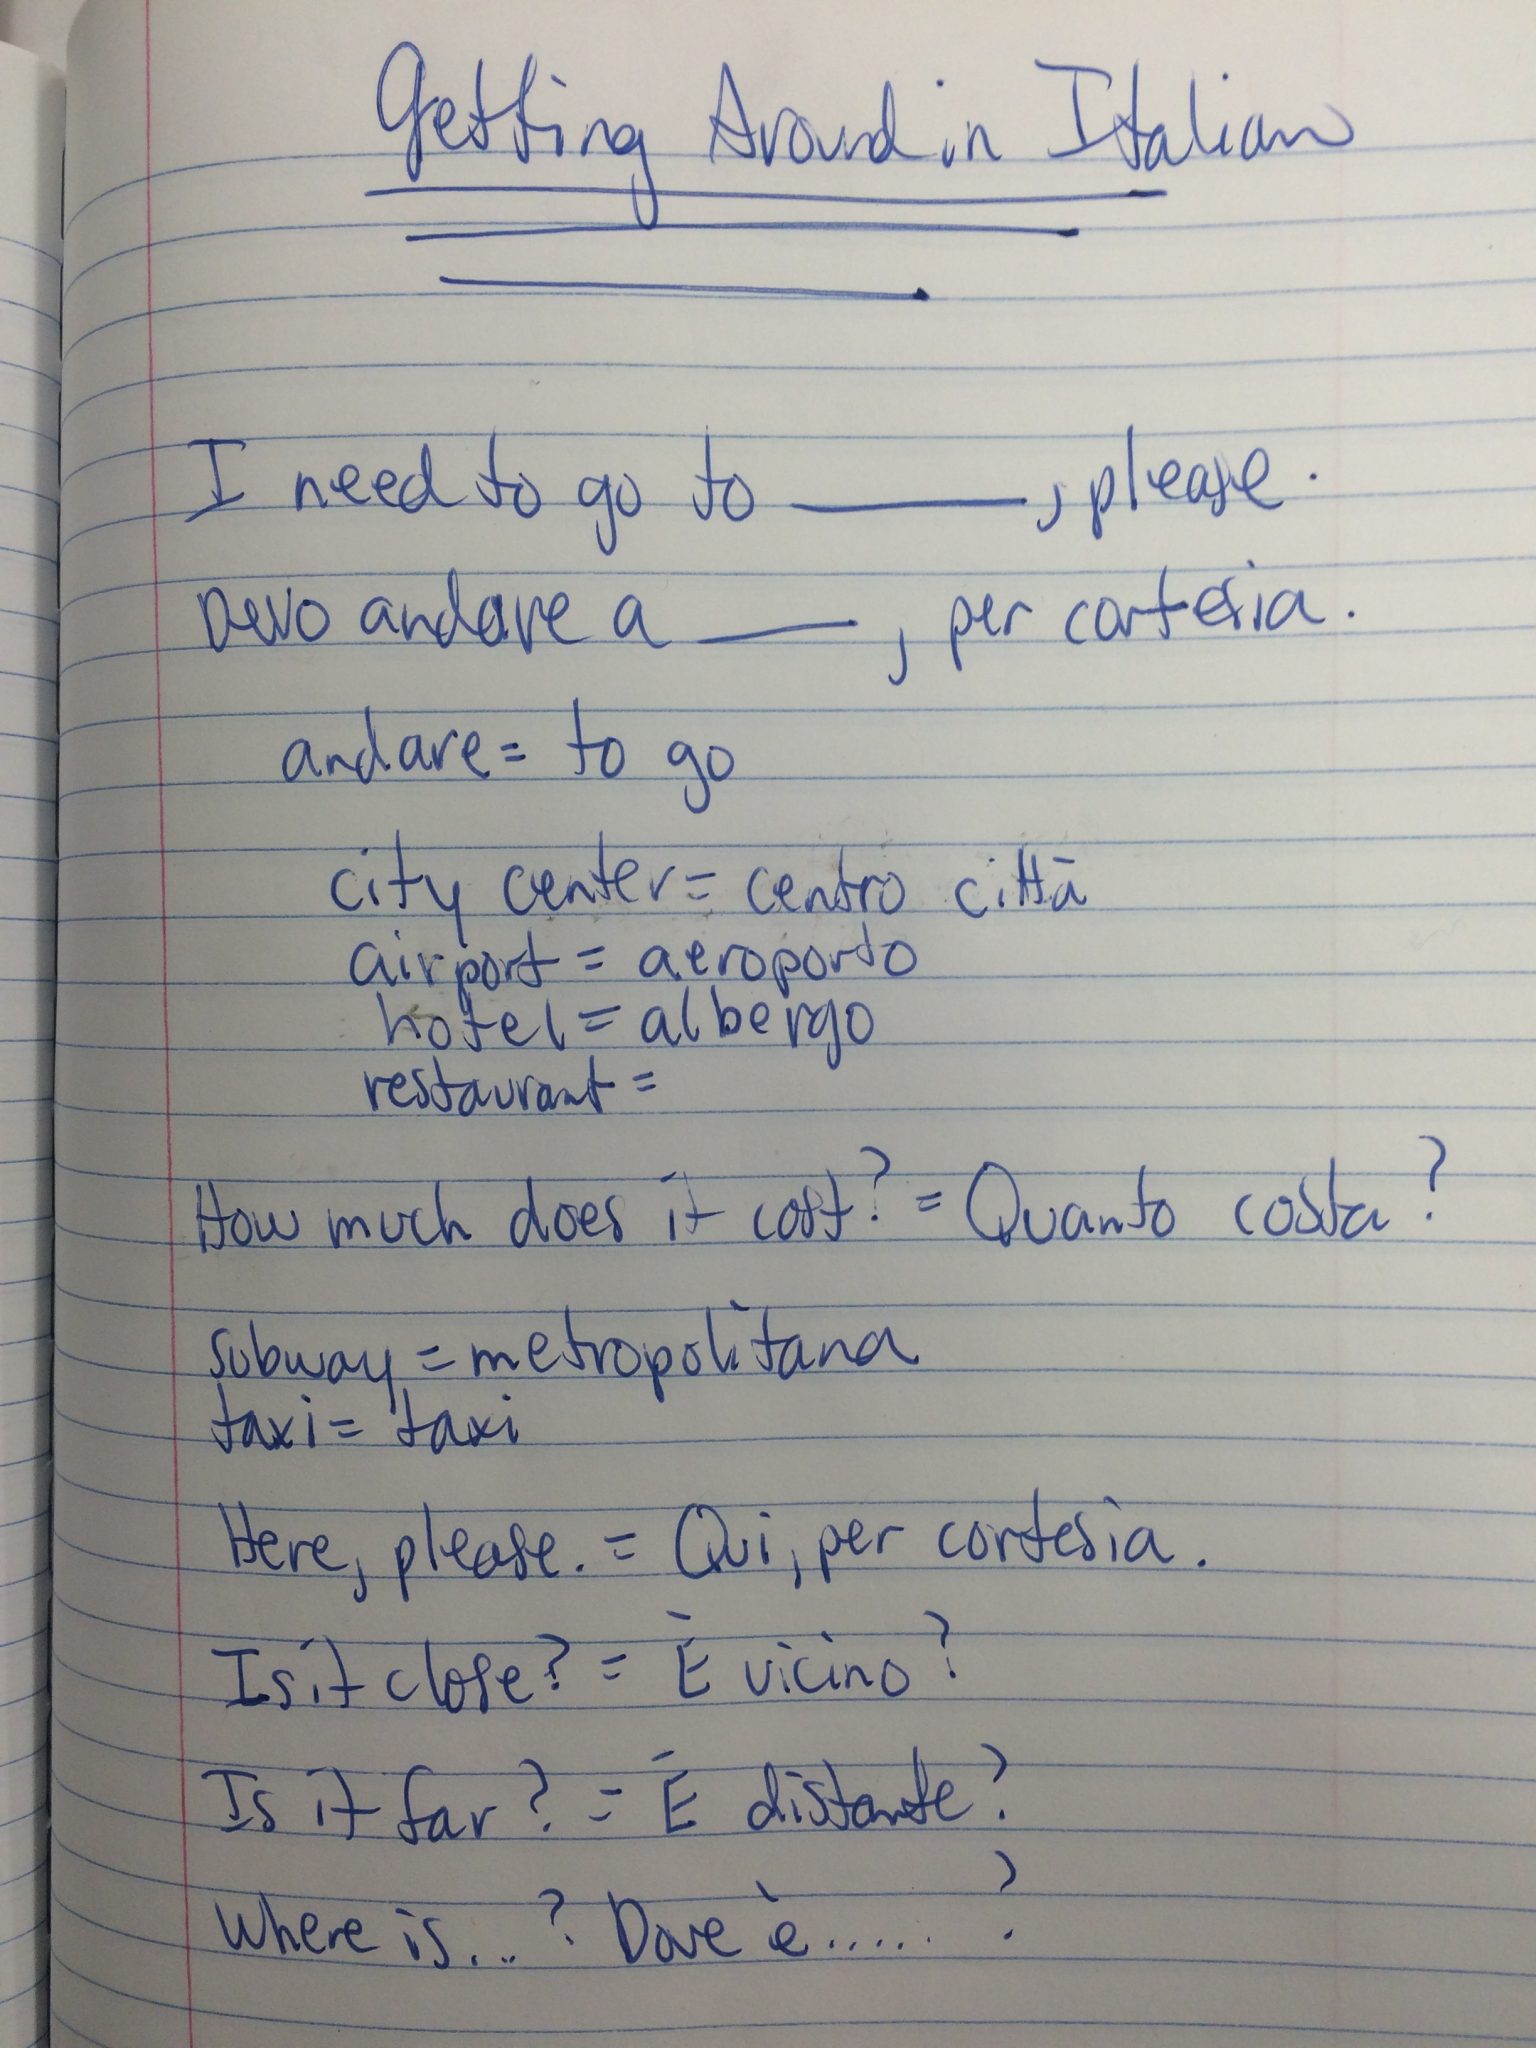 Getting Around in Italian
I need to go to ______, please.
Devo andare a ____, per cortesia.
andare = to go
city center = centro città
airport = aeroporto
hotel = albergo
restaurant =
How much does it cost? = Quanto costa?
subway = metropolitana
taxi = taxi
Here, please. = Qui, per cortesia.
Is it close? = È vicino?
Is it far? = È distante?
Where is...? Dove è.....?